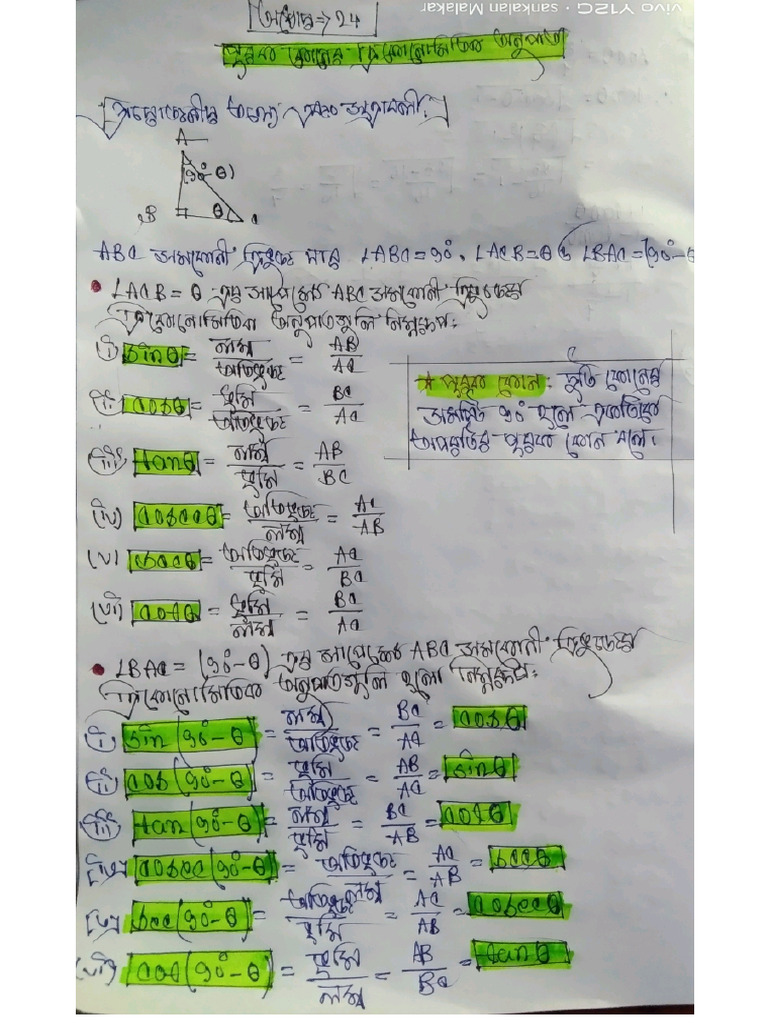 vivo Y12C · sankalan Malakar
অধ্যায় ⇒ 24
পূরক কোণের ত্রিকোণমিতিক অনুপাত
প্রয়োজনীয় তথ্য এবং সূত্রাবলী:
A
(90°-θ)
θ
B C
ABC সমকোণী ত্রিভুজে ∠ABC = 90°, ∠ACB = θ ও ∠BAC = (90°-θ
• ∠ACB = θ এর সাপেক্ষে ABC সমকোণী ত্রিভুজের
ত্রিকোণমিতিক অনুপাতগুলি নিম্নরূপ:
(i) sinθ = লম্ব/অতিভুজ = AB/AC
(ii) cosθ = ভূমি/অতিভুজ = BC/AC
(iii) tanθ = লম্ব/ভূমি = AB/BC
* পূরক কোণ: দুটি কোণের
সমষ্টি 90° হলে একটিকে
অপরটির পূরক কোণ বলে।
(iv) cosecθ = অতিভুজ/লম্ব = AC/AB
(v) secθ = অতিভুজ/ভূমি = AC/BC
(vi) cotθ = ভূমি/লম্ব = BC/AC
• ∠BAC = (90°-θ) এর সাপেক্ষে ABC সমকোণী ত্রিভুজের
ত্রিকোণমিতিক অনুপাতগুলি হলো নিম্নরূপ:
(i) sin(90°-θ) = লম্ব/অতিভুজ = BC/AC = cosθ
(ii) cos(90°-θ) = ভূমি/অতিভুজ = AB/AC = sinθ
(iii) tan(90°-θ) = লম্ব/ভূমি = BC/AB = cotθ
(iv) cosec(90°-θ) = অতিভুজ/লম্ব = AC/AB = secθ
(v) sec(90°-θ) = অতিভুজ/ভূমি = AC/AB = cosecθ
(vi) cot(90°-θ) = ভূমি/লম্ব = AB/BC = tanθ